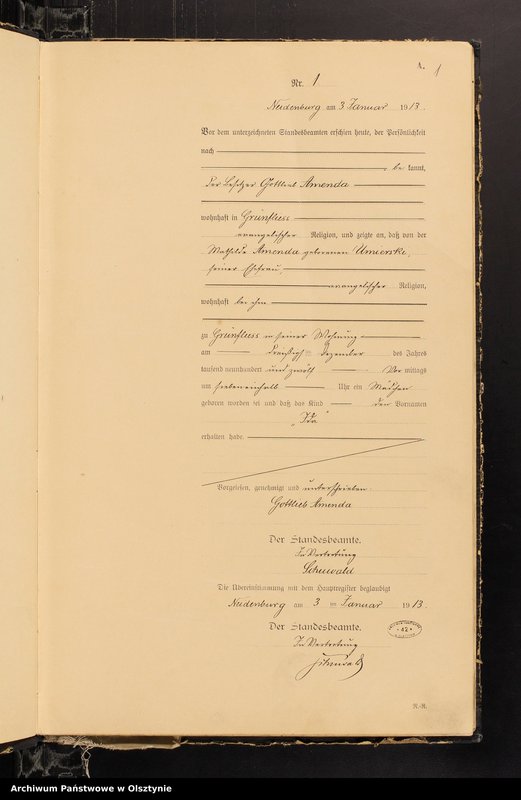 A. 1
Nr. 1
Neidenburg am 3. Januar 1913.
Vor dem unterzeichneten Standesbeamten erschien heute, der Persönlichkeit
nach
be kannt,
der Besitzer Gottlieb Amenda
wohnhaft in Grünfliess
evangelischer Religion, und zeigte an, daß von der
Mathilde Amenda geborenen Umierski,
seiner Ehefrau,
evangelischer Religion,
wohnhaft bei ihm
zu Grünfliess in seiner Wohnung
am dreißigsten Dezember des Jahres
tausend neunhundert und zwölf Vor mittags
um siebeneinhalb Uhr ein Mädchen
geboren worden sei und daß das Kind den Vornamen
„Ida“
erhalten habe.
Vorgelesen, genehmigt und unterschrieben.
Gottlieb Amenda
Der Standesbeamte.
In Vertretung
Schuwald
Die Übereinstimmung mit dem Hauptregister beglaubigt
Neidenburg am 3 ten Januar 1913.
Der Standesbeamte.
In Vertretung
42
R.-R.
Archiwum Państwowe w Olsztynie